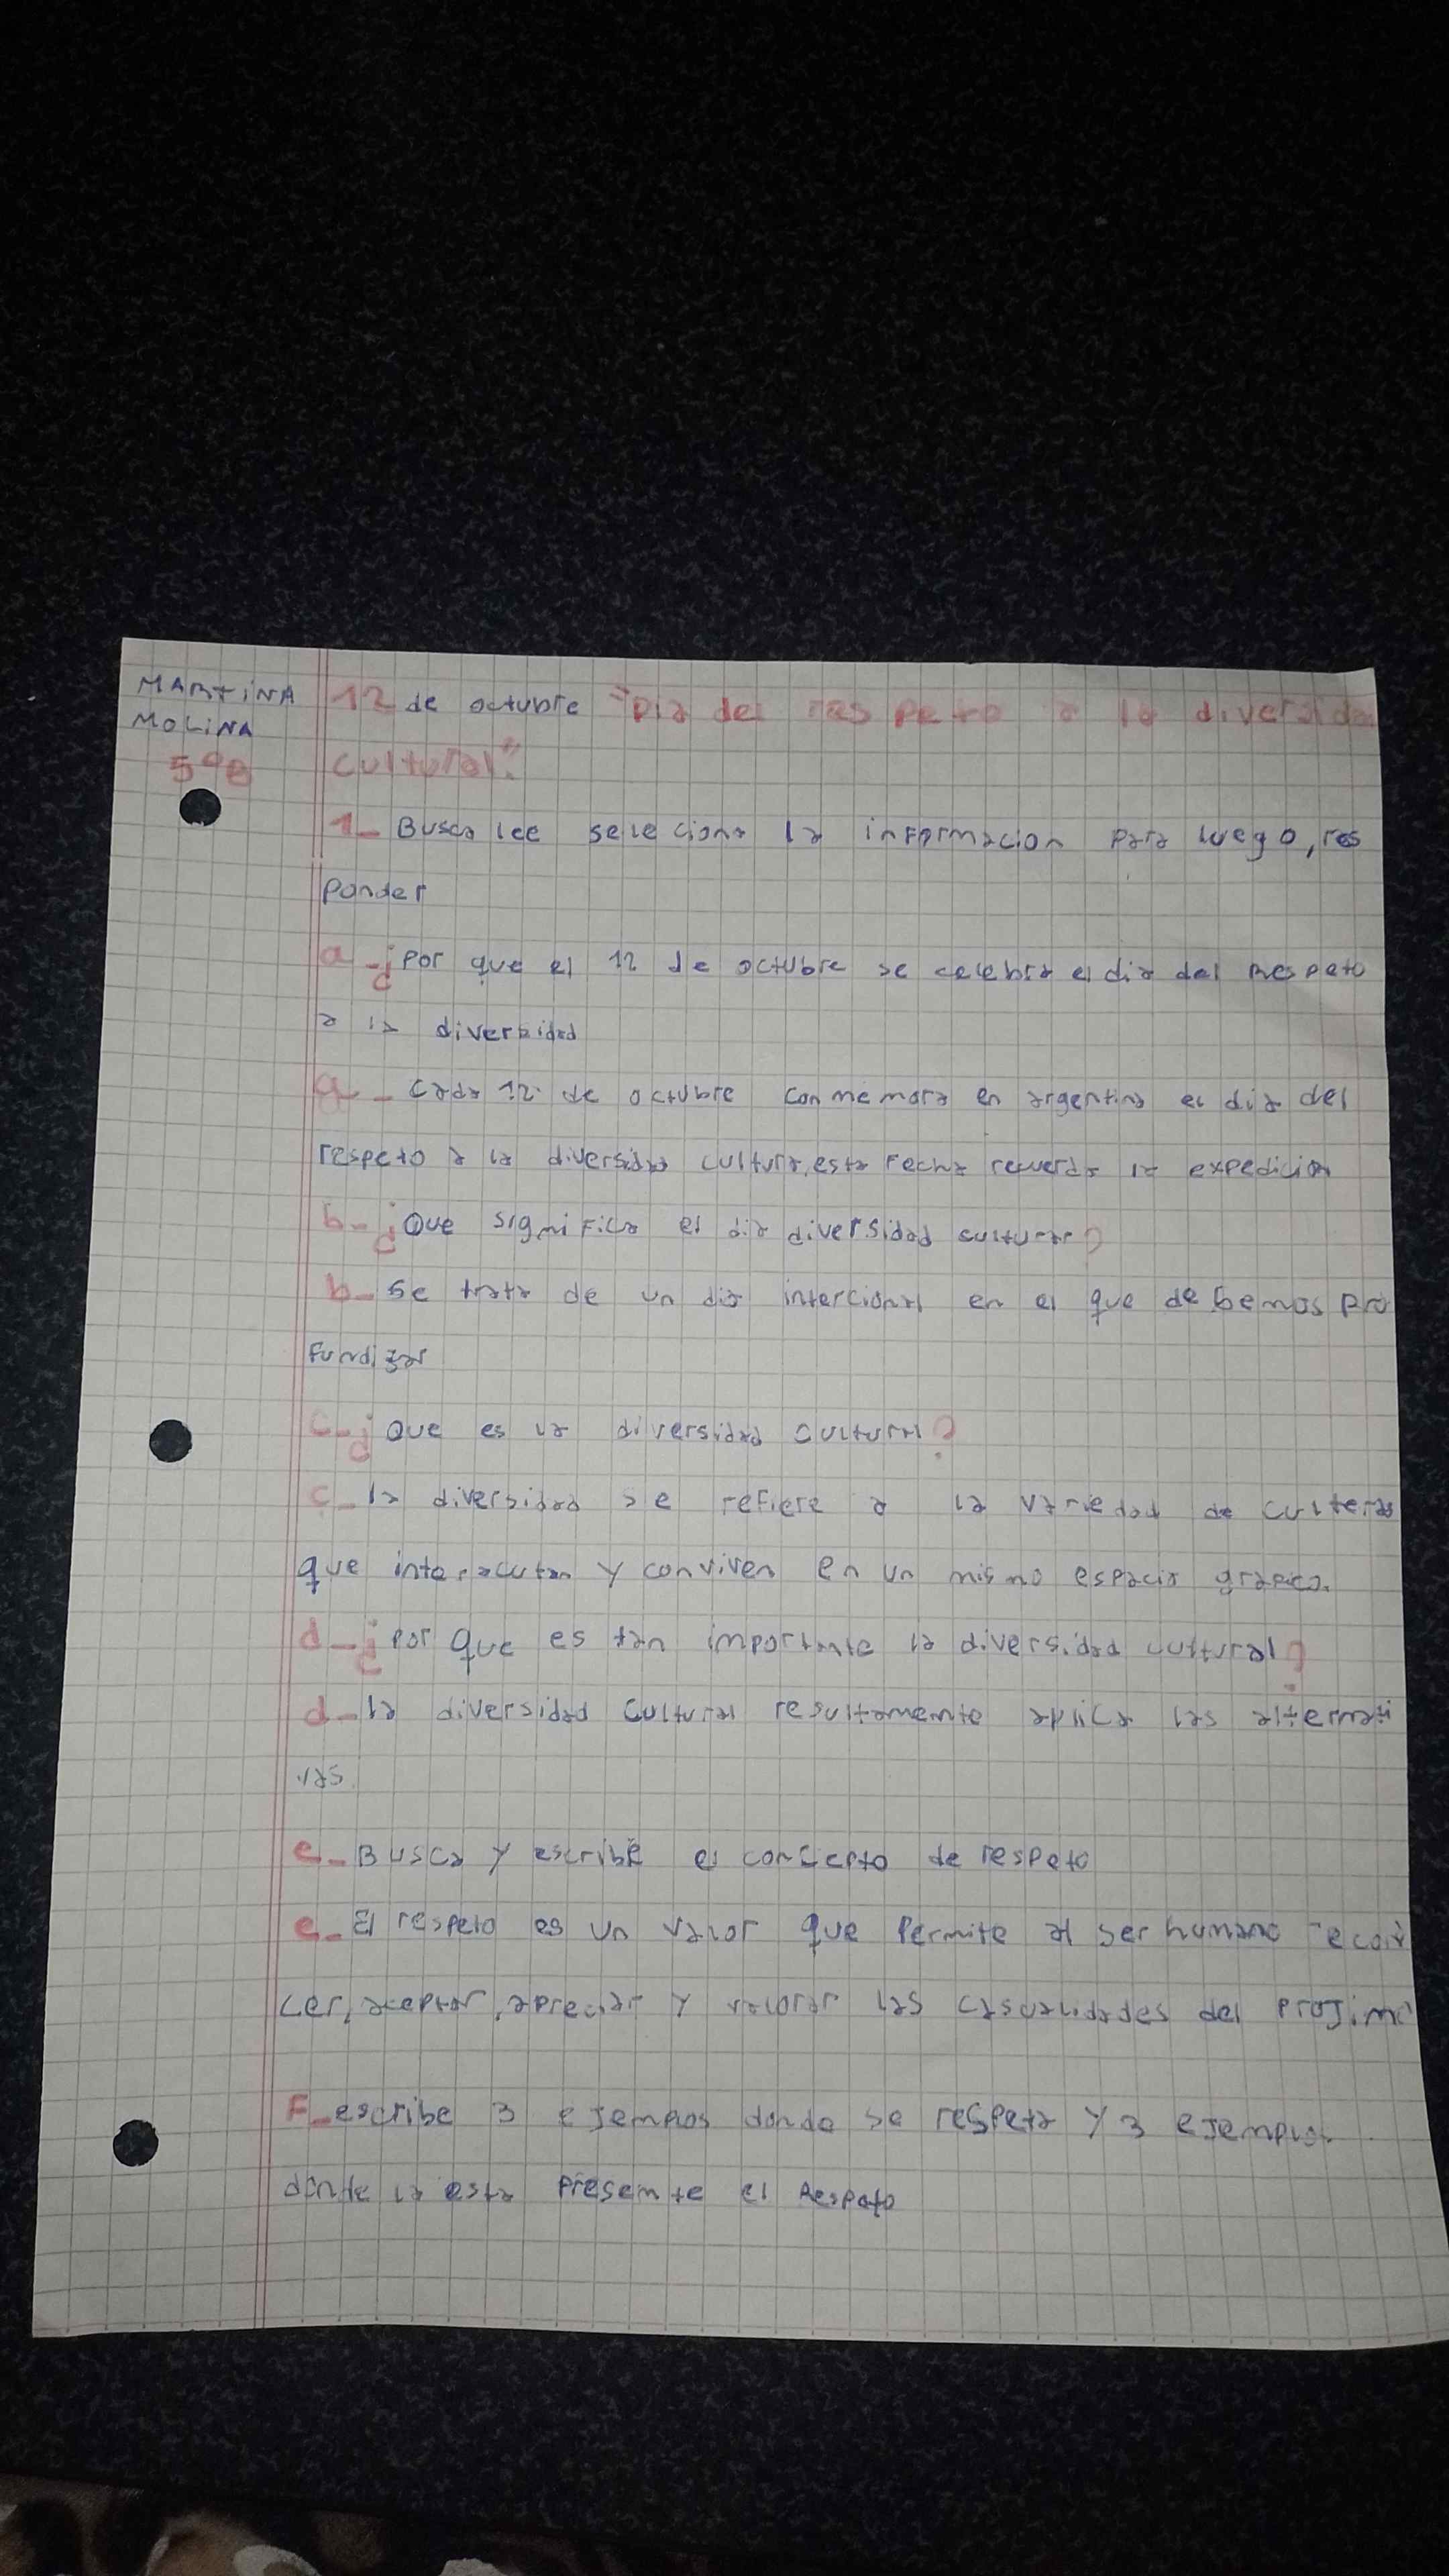 MARTINA
MOLINA
5ºB
12 de octubre "Dia del respeto a la diversidad
cultural".
1- Busca lee seleciona la informacion para luego, res
ponder
a-¿Por que el 12 de octubre se celebra el dia del Respeto
a la diversidad
a- cada 12 de octubre conmemora en argentina el dia del
respeto a la diversidad cultura, esta fecha recuerda la expedicion
b-¿Que significa el dia diversidad cultural?
b- se trata de un dia intercional en el que debemos pro
fundizar
c-¿Que es la diversidad cultural?
c- la diversidad se refiere a la variedad de culteras
que interacutan y conviven en un mismo espacio grafico.
d-¿por que es tan importante la diversidad cultural?
d-la diversidad cultural resultamente aplica las alternati
vas
e-Busca y escribe el concepto de respeto
e-El respeto es un valor que permite al ser humano
cer, aceptar, apreciar y valorar las casualidades del projimo
F-escribe 3 ejemplos donde se respeta y 3 ejemplos
donde la esta presente el Respeto